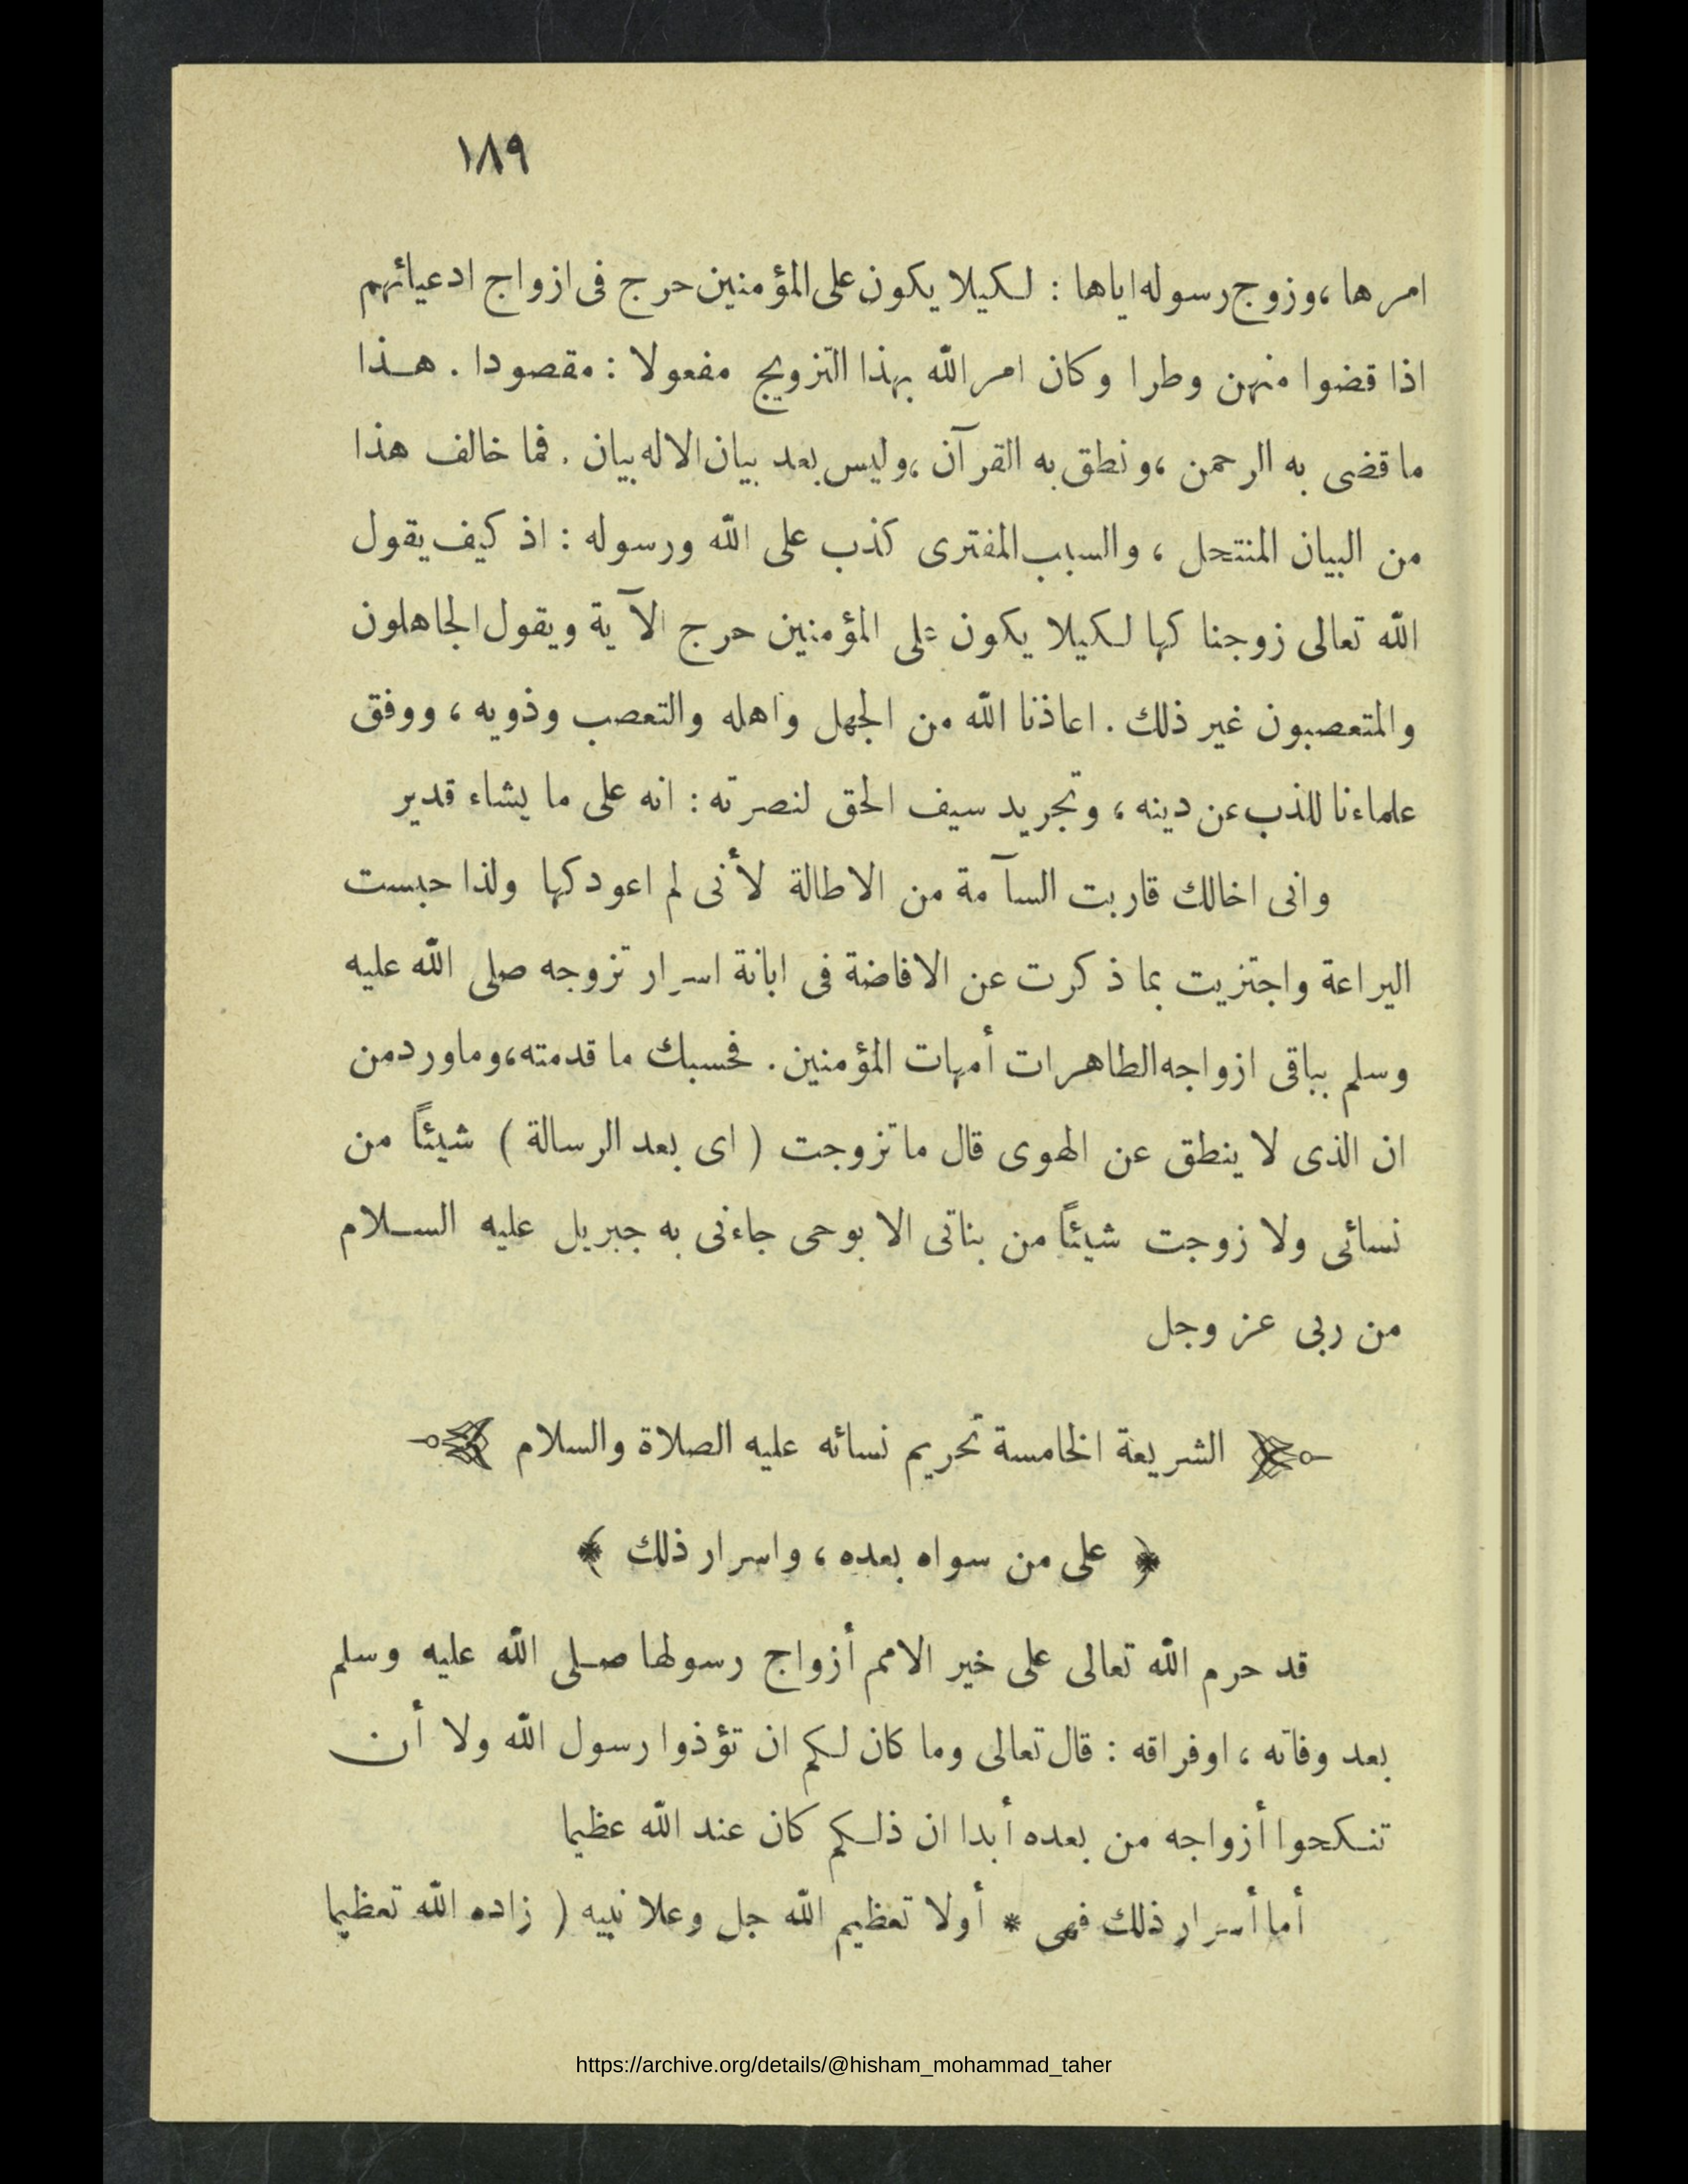 ١٨٩
امرها ، وزوج رسوله اياها : لكيلا يكون على المؤمنين حرج فى ازواج ادعيائهم
اذا قضوا منهن وطرا وكان امر الله بهذا التزويج مفعولا : مقصودا . هذا
ما قضى به الرحمن ، ونطق به القرآن ، وليس بعد بيان الاله بيان . فما خالف هذا
من البيان المنتحل ، والسبب المفترى كذب على الله ورسوله : اذ كيف يقول
الله تعالى زوجنا كها لكيلا يكون على المؤمنين حرج الآية ويقول الجاهلون
والمتعصبون غير ذلك . اعاذنا الله من الجهل واهله والتعصب وذويه ، ووفق
علماءنا للذب عن دينه ، وتجريد سيف الحق لنصرته : انه على ما يشاء قدير
وانى اخالك قاربت السآمة من الاطالة لأنى لم اعودكها ولذا حبست
اليراعة واجتزيت بما ذكرت عن الافاضة فى ابانة اسرار تزوجه صلى الله عليه
وسلم بباقى ازواجه الطاهرات أمهات المؤمنين . فحسبك ما قدمته ، وما ورد من
ان الذى لا ينطق عن الهوى قال ما تزوجت ( اى بعد الرسالة ) شيئاً من
نسائى ولا زوجت شيئاً من بناتى الا بوحى جاءنى به جبريل عليه السلام
من ربى عز وجل
الشريعة الخامسة تحريم نسائه عليه الصلاة والسلام
﴿ على من سواه بعده ، واسرار ذلك ﴾
قد حرم الله تعالى على خير الامم أزواج رسولها صلى الله عليه وسلم
بعد وفاته ، اوفراقه : قال تعالى وما كان لكم ان تؤذوا رسول الله ولا أن
تنكحوا أزواجه من بعده أبدا ان ذلكم كان عند الله عظيما
أما أسرار ذلك فهى * أولا تعظيم الله جل وعلا نبيه ( زاده الله تعظيما
https://archive.org/details/@hisham_mohammad_taher